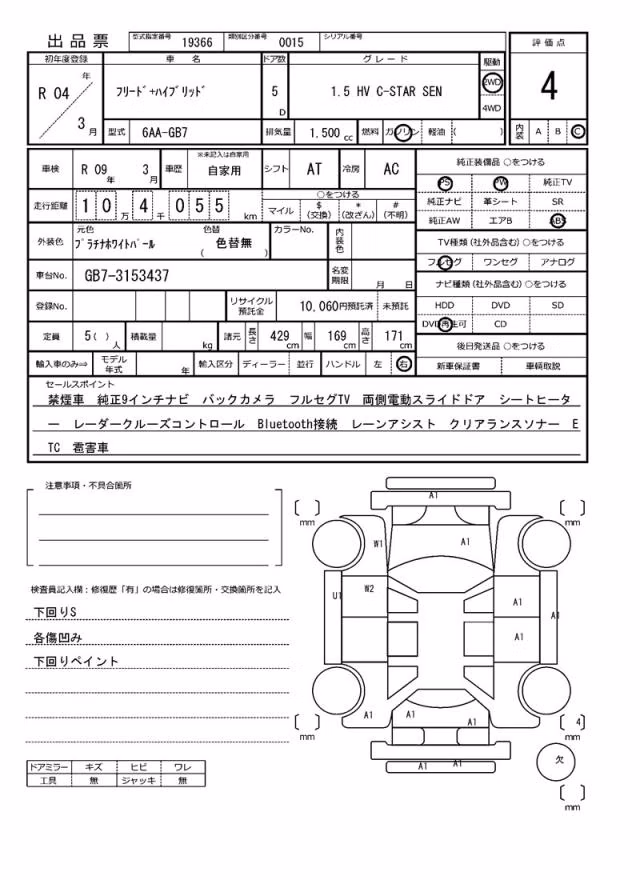 出品票
型式指定番号 19366 類別区分番号 0015 シリアル番号
評価点
4
内装 A B C
初年度登録 車名 ドア数 グレード 駆動
R 04 年 3 月
フリード+ハイブリッド
5 D
1.5 HV C-STAR SEN
2WD
4WD
型式 6AA-GB7 排気量 1.500 cc 燃料 ガソリン 軽油 ( )
車検 R 09 年 3 月 車歴 ※未記入は自家用 自家用 シフト AT 冷房 AC
走行距離 1 0 万 4 千 0 5 5 km
○をつける
マイル $ (交換) * (改ざん) # (不明)
外装色 元色 プラチナホワイトパール 色替 ( 色替無 ) カラーNo. 内装色
車台No. GB7-3153437 名変期限 月 日
登録No. リサイクル預託金 10,060円預託済 未預託
定員 5( ) 人 積載量 kg 諸元 長さ 429 cm 幅 169 cm 高さ 171 cm
輸入車のみ⇒ モデル年式 年 輸入区分 ディーラー 並行 ハンドル 左 右
純正装備品 ○をつける
PS PW 純正TV
純正ナビ 革シート SR
純正AW エアB ABS
TV種類(社外品含む)○をつける
フルセグ ワンセグ アナログ
ナビ種類(社外品含む)○をつける
HDD DVD SD
DVD再生可 CD
後日発送品 ○をつける
新車保証書 車輌取説
セールスポイント
禁煙車 純正9インチナビ バックカメラ フルセグTV 両側電動スライドドア シートヒータ
ー レーダークルーズコントロール Bluetooth接続 レーンアシスト クリアランスソナー E
TC 雹害車
注意事項・不具合箇所
検査員記入欄:修復歴「有」の場合は修復箇所・交換箇所を記入
下回りS
各傷凹み
下回りペイント
ドアミラー キズ ヒビ ワレ
工具 無 ジャッキ 無
A1
[ ] mm
[ ] mm
W1
A1
U1
W2
A1
A1
A1
A1
A1
A1
[ ] mm
[ 4] mm
A1
A1
欠
[ ] mm